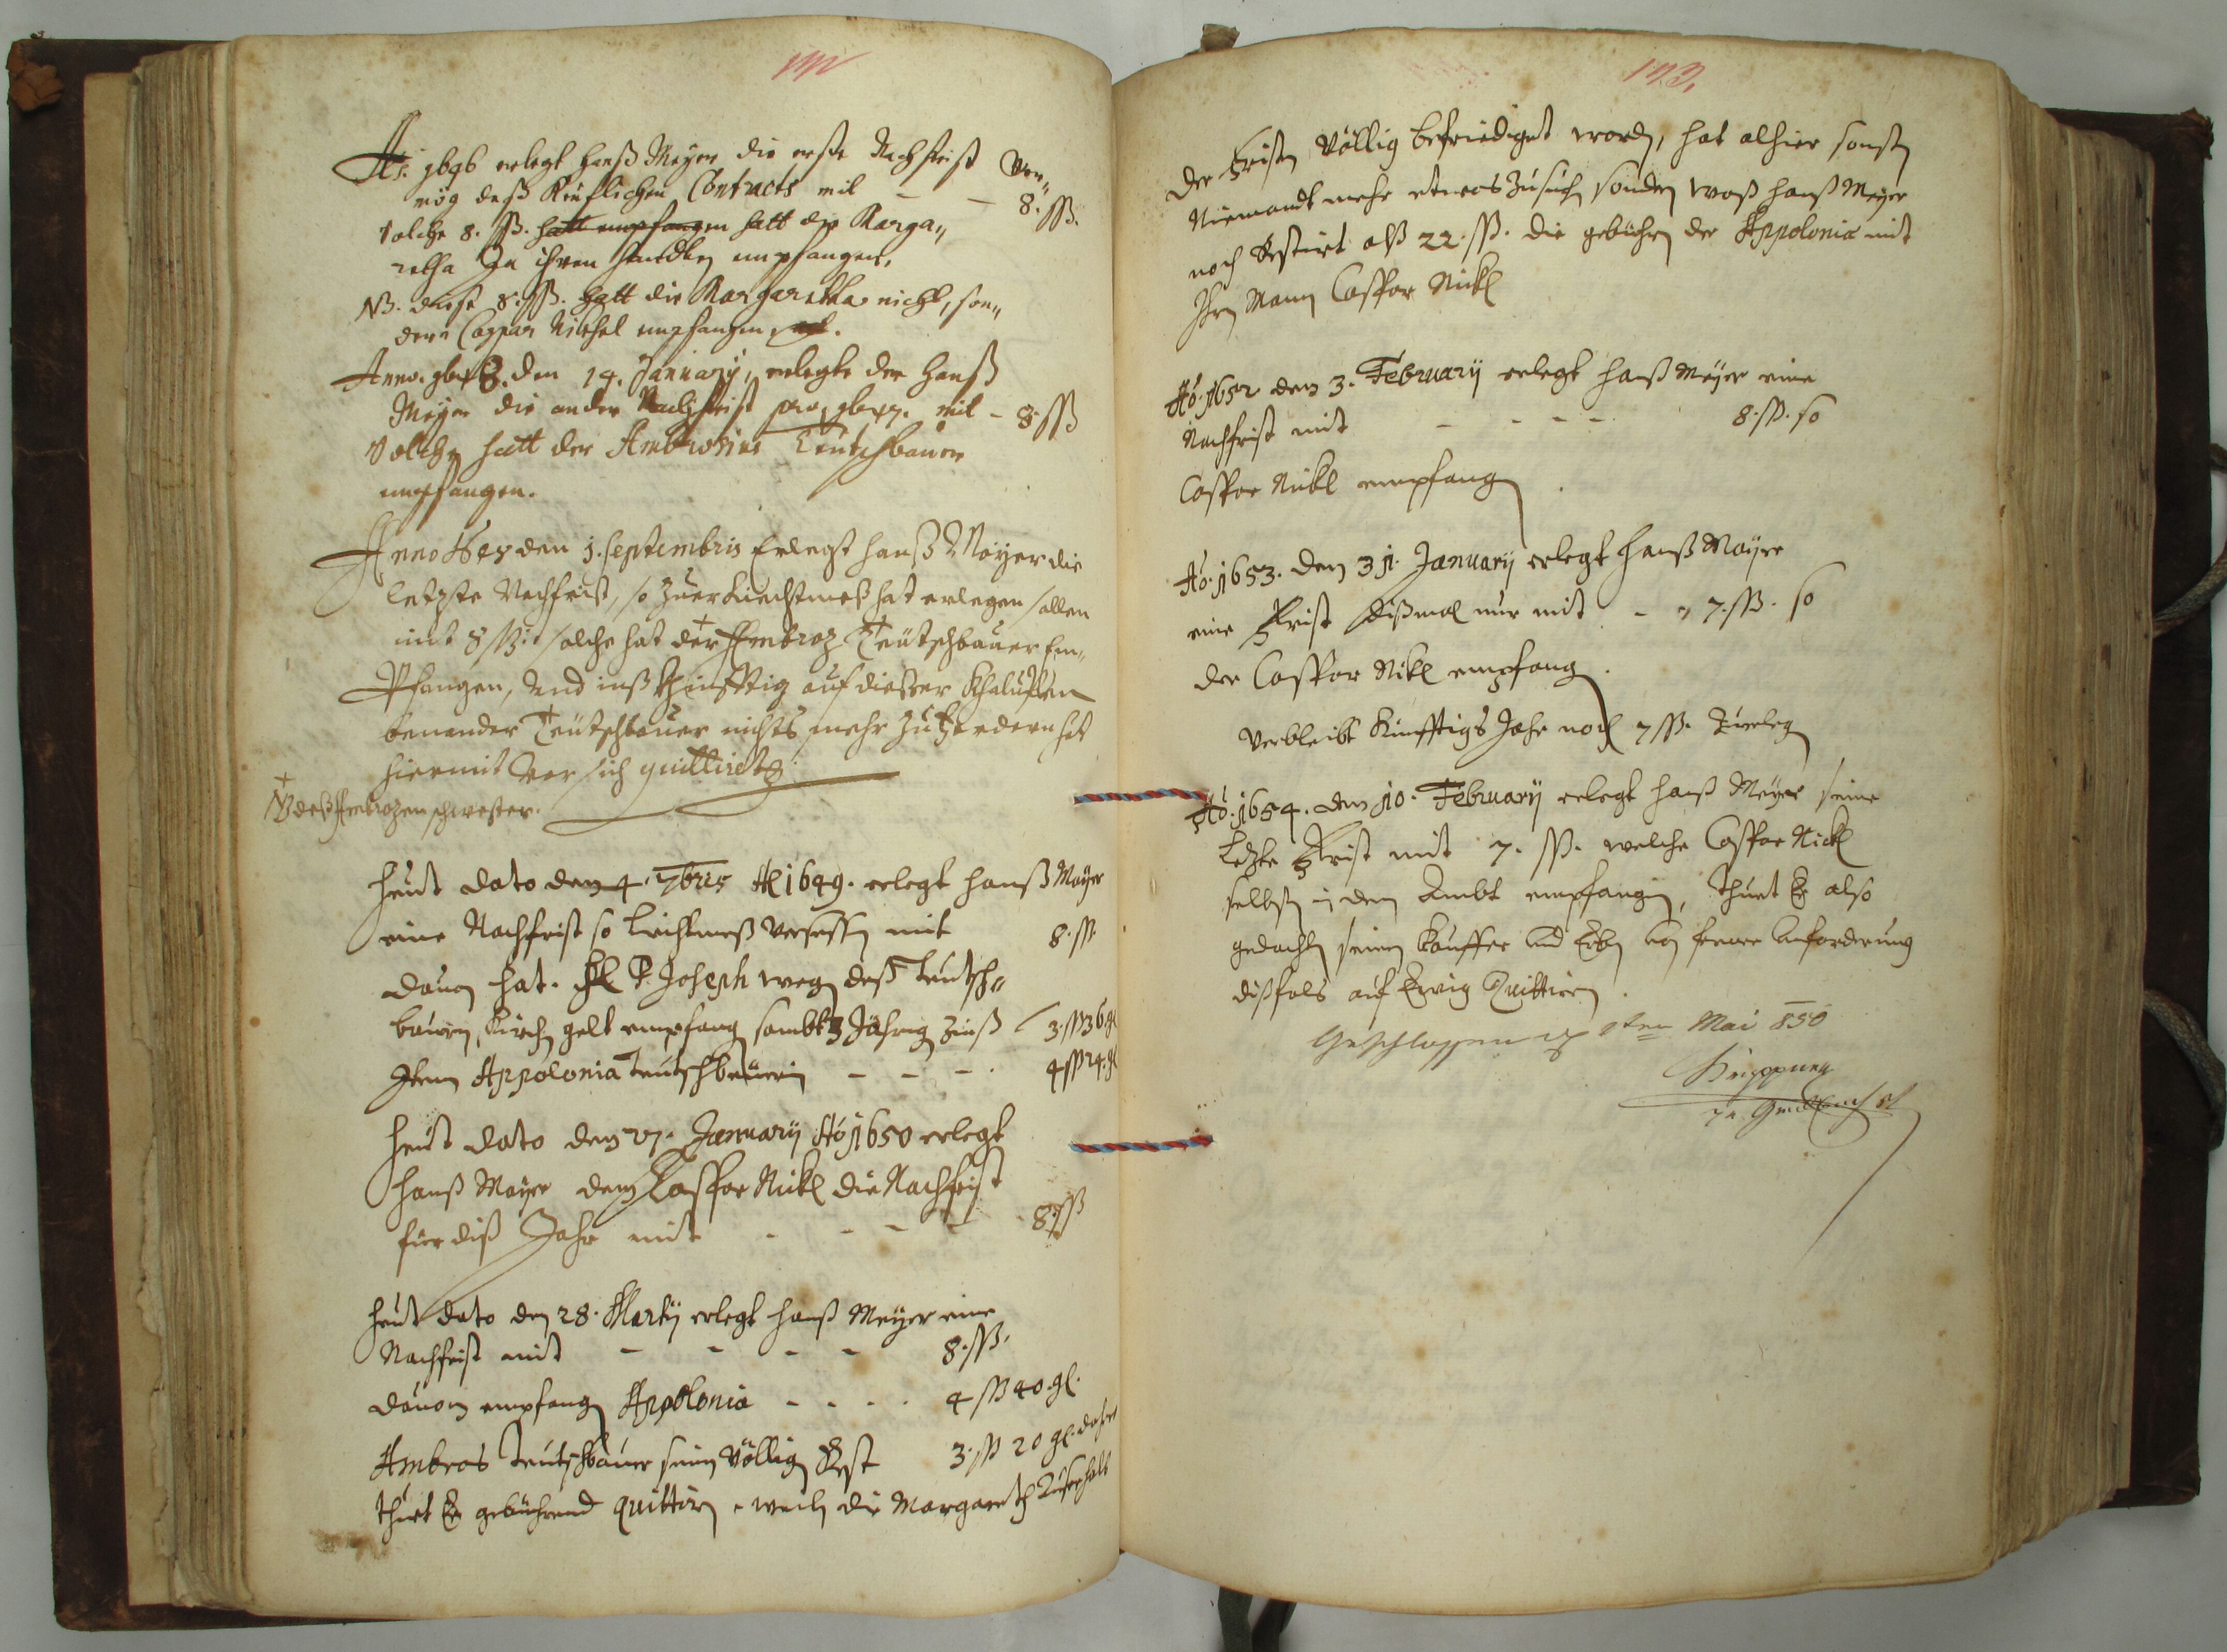 Ao. 1646 erlegt Hanß Meÿer die erste Nachfrist Ver„
mög deß Kieflichen Contracts mit — — 8. ßß.
Solche 8. ßß. hatt empfangen hatt die Marga„
retha In ihren handten empfangen,
NB. diese 8. ßß. hatt die Margaretha nicht, son„
dern Caspar Nikhel empfangen.
Anno. den 14. Januarÿ, erlegte der Hanß
Meÿer die ander Nachfrist pro mit – 8 ßß
Solche hatt der Ambrosius Teutschbauer
empfangen.
Anno den 1. Septembris Erlegt Hanß Maÿer die
letzte Nachfrist, so zuer Liechtmeß hat erlegen sollen
mit 8 ßß: solche hat der Ambroz Teütschbauer Em„
Pfangen, Und inß Khinfftig auf diesser Khaluppen
benander Teütschbauer nichts mehr zu fordern hat
hiermit Vor sich quittiret
NB deß Ambrozen schwester.
Heut dato den 4. 7bris Ao 1649. erlegt Hanß Maÿer
eine Nachfrist so Liechtmeß Versessen mit 8. ßß.
dauon hat. P. Joseph wegen deß Teutsch„
bauern, Kirchen gelt empfangen sambt 3 Jährigen Zinß 3. ßß 36 gl
Item Appolonia Teutschbeuerin — — — . 4 ßß 24. gl
Heut dato den 27. Januarÿ Ao 1650 erlegt
Hanß Maÿer dem Casspar Nikl die Nachfrist
für diß Jahr mit - - - - 8. ßß
Heut dato den 28. Martÿ erlegt Hanß Meÿer eine
Nachfrist mit – – – – 8. ßß.
dauon empfangen Appolonia – – – . 4 ßß 40. gl.
Ambros Teutschbauer seinen Völligen Rest 3. ßß 20 gl. daher
thuet Er gebührend quittiren, weilen die Margareth
123.
der Fristen Völlig befriediget worden, hat alhier sonsten
Niemandt mehr etwas zusuchen sondern waß Hanß Meÿer
noch Restirt alß 22. ßß. die gebühren der Appolonia mit
Ihren Mann Casspar Nikl
Ao. 1652 den 3. Februarÿ erlegt Hanß Meÿer eine
Nachfrist mit – - – – 8. ßß. so
Casspar Nikl empfangen.
Ao. 1653. den 31. Januarÿ erlegt Hanß Maÿer
eine Frist dißmal nur mit – 7. ßß. so
der Casspar Nikl empfangen.
Verbleibt Künfftigs Jahr noch 7 ßß. Zuerlegen
Ao. 1654. den 10. Februarÿ erlegt Hanß Meÿer seine
Letzte Frist mit 7. ßß. welche Casspar Nickl
selbsten in dem Ambt empfangen, thuet Er also
gedachten seinen Kauffer und Erben von ferner anforderung
dißfals auf Ewig Quittiren.
Geschlossen den Mai 850